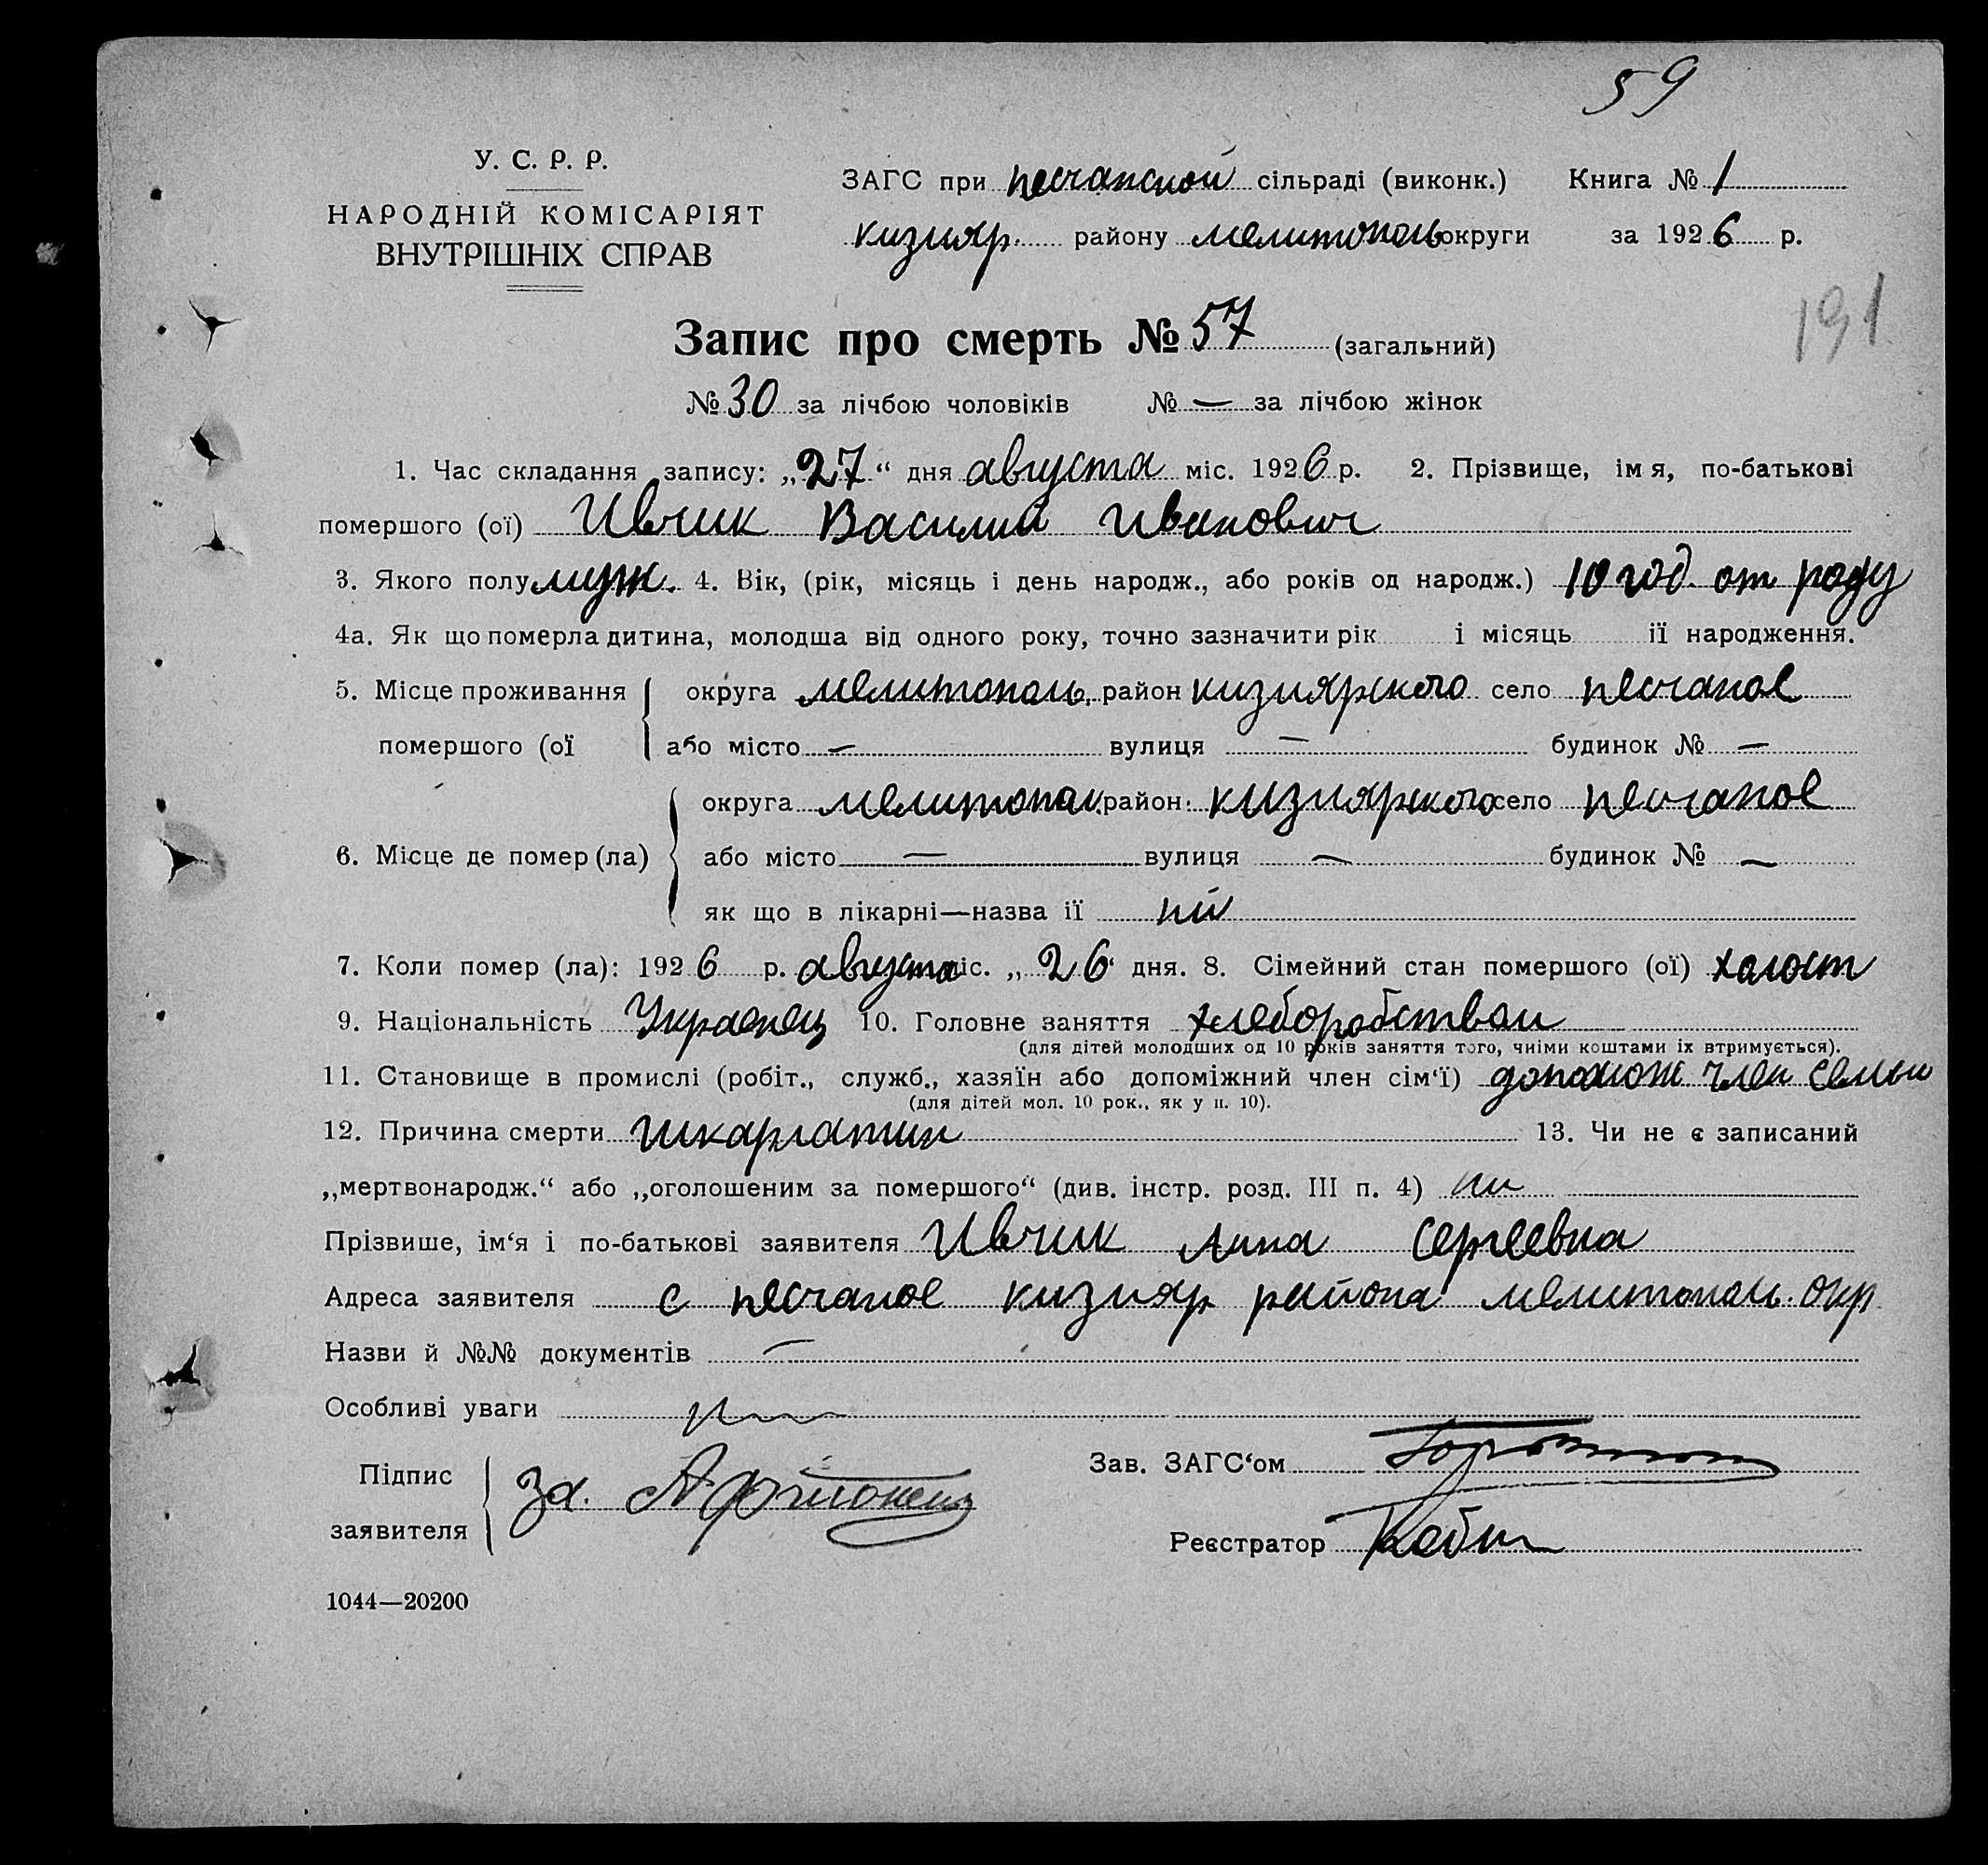 59
У. С. Р. Р.
НАРОДНІЙ КОМІСАРІЯТ
ВНУТРІШНІХ СПРАВ
ЗАГС при песчанской сільраді (виконк.) Книга № 1
кизияр. району мелитополь округи за 1926 р.
191
Запис про смерть № 57 (загальний)
№ 30 за лічбою чоловіків № — за лічбою жінок
1. Час складання запису: „27“ дня августа міс. 1926 р. 2. Прізвище, імя, по-батькові
помершого (ої) Ивчик Василий Иванович
3. Якого полу муж. 4. Вік, (рік, місяць і день народж., або років од народж.) 10 год. от роду
4а. Як що померла дитина, молодша від одного року, точно зазначити рік і місяць її народження.
5. Місце проживання округа мелитополь. район кизиярского село песчаное
помершого (ої або місто — вулиця — будинок № —
округа мелитопол. район кизиярского село песчаное
6. Місце де помер (ла) або місто — вулиця — будинок № —
як що в лікарні—назва її ни
7. Коли помер (ла): 1926 р. августа міс. „26“ дня. 8. Сімейний стан помершого (ої) халост
9. Національність Украенец 10. Головне заняття хлеборобством
(для дітей молодших од 10 років заняття того, чиїми коштами їх втримується).
11. Становище в промислі (робіт., служб., хазяїн або допоміжний член сім‘ї) допомож член семьи
(для дітей мол. 10 рок., як у п. 10).
12. Причина смерти шкарлатин 13. Чи не є записаний
„мертвонародж.“ або „оголошеним за помершого“ (див. інстр. розд. III п. 4) ни
Прізвише, ім‘я і по-батькові заявителя Ивчик Анна Сергеевна
Адреса заявителя с песчаное кизияр района мелитополь. окр
Назви й №№ документів —
Особливі уваги
Підпис
заявителя
За.
Зав. ЗАГС‘ом
Реєстратор
1044—20200